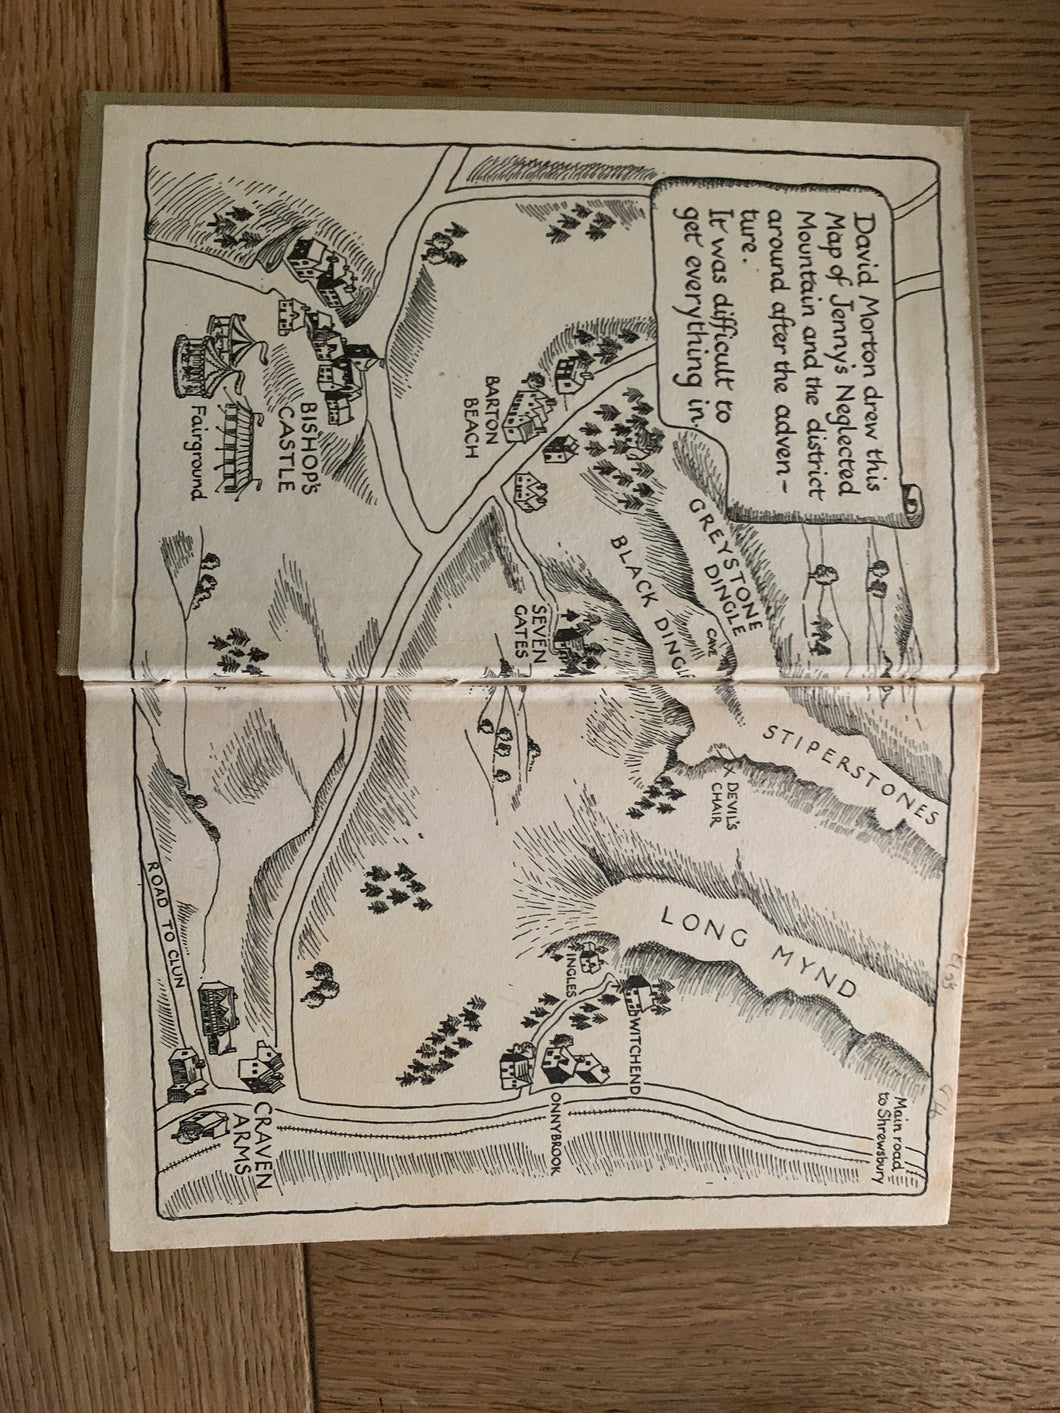 David Morton drew this
Map of Jenny's Neglected
Mountain and the district
around after the adven-
ture.
It was difficult to
get everything in.
GREYSTONE
DINGLE
BLACK DINGLE
CAVE
STIPERSTONES
DEVIL'S
CHAIR
LONG MYND
Main road
to Shrewsbury
BARTON
BEACH
SEVEN
GATES
INGLES
WITCHEND
ONNYBROOK
BISHOP'S
CASTLE
Fairground
ROAD TO CLUN
CRAVEN
ARMS